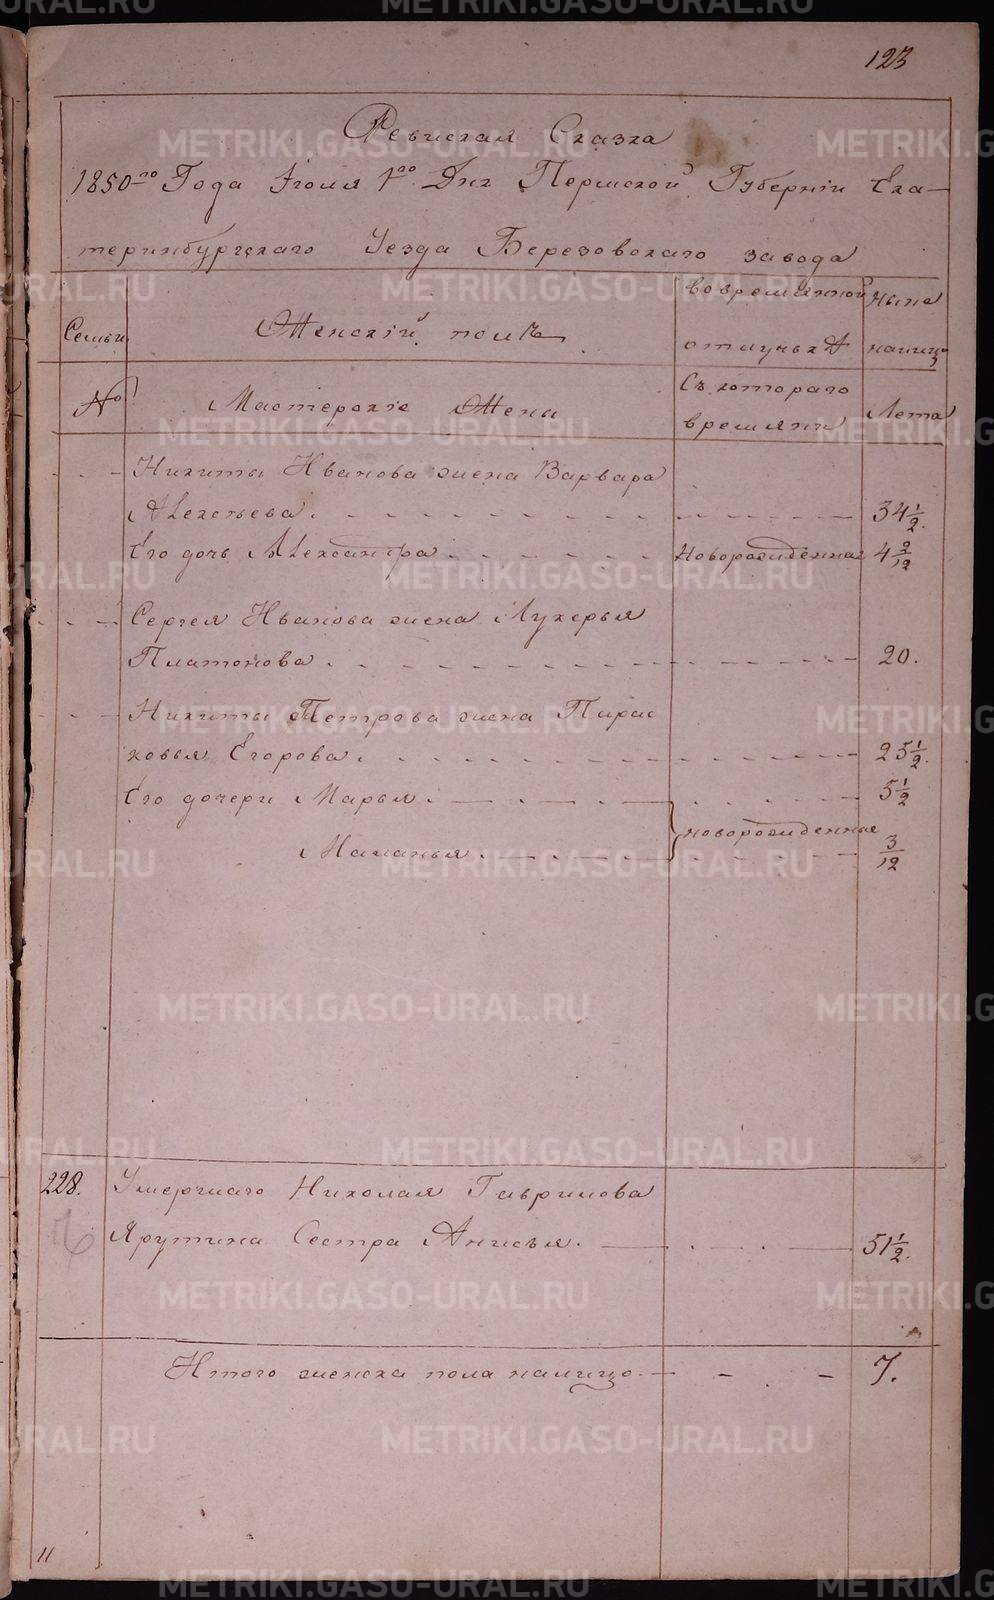 123
Ревизская Сказка
1850-го Года Iюля 1го Дня Пермской Губернiи Ека-
теринбургскаго Уезда Березовскаго завода
Семьи
Женскiй полъ
во времянной
отлучьке
Ныне
налицо
№
Мастерскiе Жена
Съ котораго
времяни
Лета
Никиты Иванова жена Варвара
Алексеева. 34 1/2.
Его дочь Александра Новорожденная 4 2/12
Сергея Иванова жена Лукерья
Платонова. 20.
Никиты Петрова жена Парас
ковья Егорова. 25 1/2.
Его дочери Марья. 5 1/2
новорожденные
Маланья. 3/12
228. Умершаго Николая Гаврилова
Ярутина Сестра Анисья. 51 1/2.
Итого женска пола налицо. 7.
11
METRIKI.GASO-URAL.RU